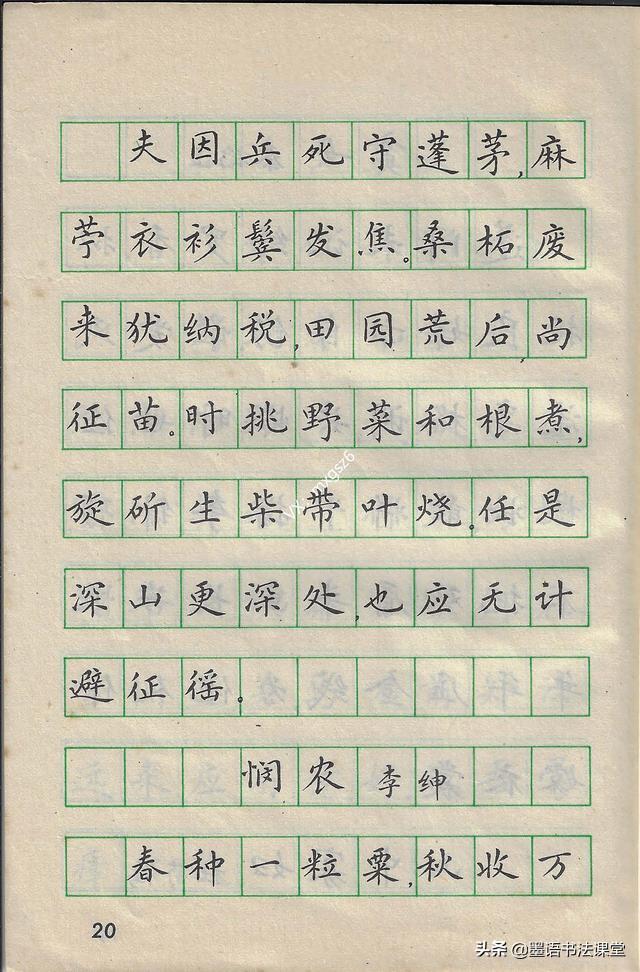 夫因兵死守蓬茅,麻
苧衣衫鬓发焦。桑柘废
来犹纳税,田园荒后,尚
征苗。时挑野菜和根煮,
旋斫生柴带叶烧。任是
深山更深处,也应无计
避征徭。
悯农 李绅
春种一粒粟,秋收万
20
头条@墨语书法课堂